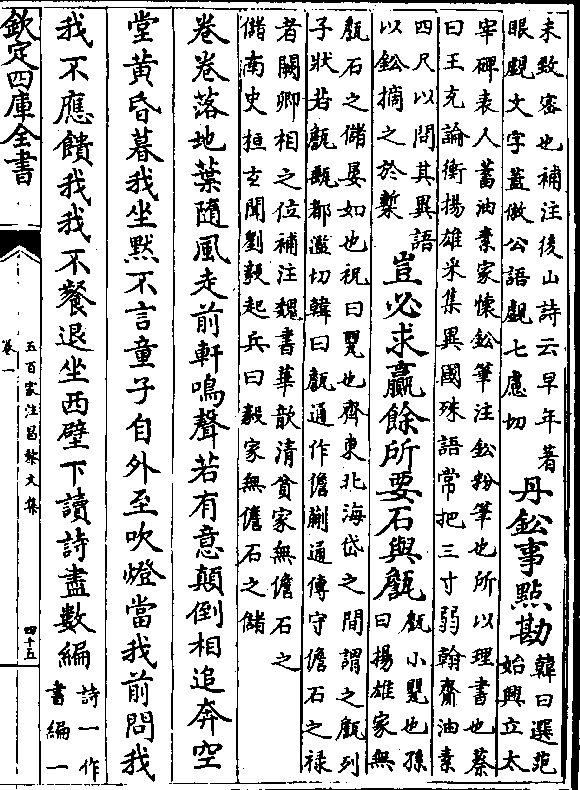 未致密也補注後山詩云早年著
眼覷文字蓋倣公語覷七慮切
丹鈆事點勘
韓曰選范
始興立太
宰碑表人蓄油素家懷鈆筆注鈆粉筆也所以理書也蔡
曰王充論衡揚雄采集異國殊語常把三寸弱翰齎油素
四尺以問其異語
以鈆摘之於槧
豈必求贏餘所要石與甔
甔小甖也孫
曰揚雄家無
甔石之儲晏如也祝曰甖也齊東北海岱之間謂之甔列
子狀若甔甀都濫切韓曰甔通作儋蒯通傳守儋石之禄
者闕卿相之位補注魏書華歆清貧家無儋石之
儲南史桓玄聞劉毅起兵曰毅家無儋石之儲
卷卷落地葉隨風走前軒鳴聲若有意顛倒相追奔空
堂黄昏暮我坐黙不言童子自外至吹燈當我前問我
我不應饋我我不餐退坐西壁下讀詩盡數編
詩一作
書編一
欽定四庫全書
五百家注昌黎文集
卷一
四十五